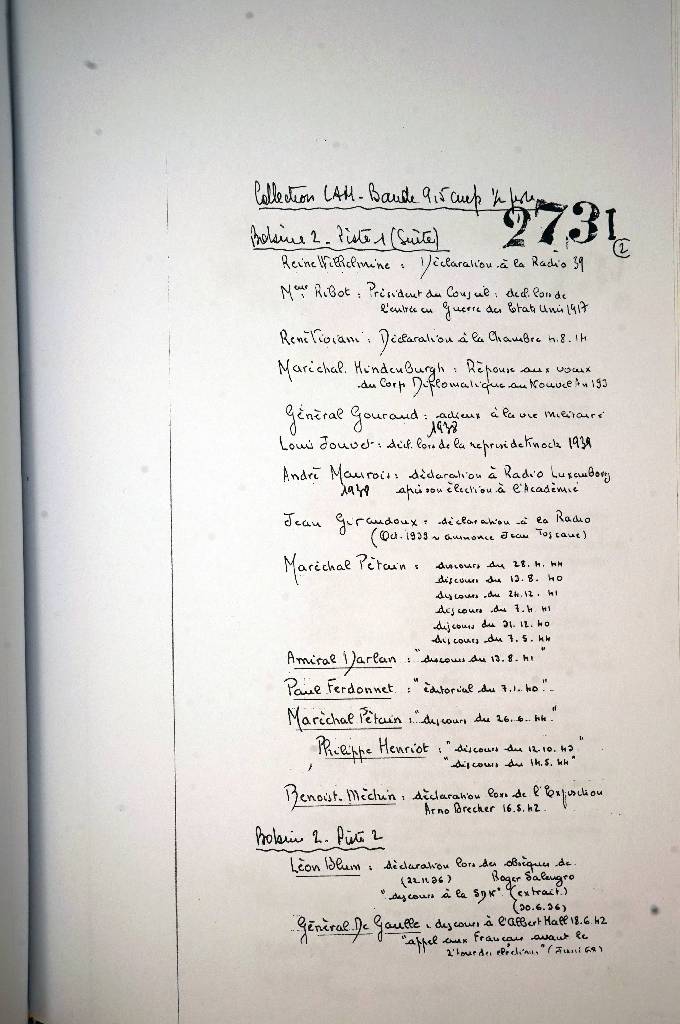 Collection LAH - Bande 9,5 cm/s ½ piste
2731
Bobine 2 - Piste 1 (Suite)
2
Reine Wilhelmine : Déclaration à la Radio 39
Meur Ribot : Président du Conseil : décl. lors de
l'entrée en Guerre des Etats Unis 1917
René Viviani : Déclaration à la Chambre 4.8.14
Maréchal HindenBurgh : Réponse aux voeux
du Corp Diplomatique au Nouvel An 193
Général Gouraud : adieux à la vie militaire
1938
Louis Jouvet : décl. lors de la reprise de Knock 1939
André Maurois : déclaration à Radio Luxembourg
1939 après son élection à l'Académie
Jean Giraudoux : déclaration à la Radio
(Oct. 1939 annonce Jean Toscane)
Maréchal Pétain : discours du 28.4.44
discours du 13.8.40
discours du 24.12.41
discours du 7.4.41
discours du 31.12.40
discours du 7.5.44
Amiral Darlan : "discours du 13.8.41"
Paul Ferdonnet : "éditorial du 7.1.40"-
Maréchal Pétain : "discours du 26.6.44"
Philippe Henriot : "discours du 12.10.43"
"discours du 14.5.44"
Benoist-Méchin : déclaration lors de l'Exposition
Arno Brecker 16.5.42.
Bobine 2 - Piste 2
Léon Blum : déclaration lors des obsèques de
(22.11.36) Roger Salengro
"discours à la SDN" (extrait)
(30.6.36)
Général De Gaulle : discours à l'Albert Hall 18.6.42
"appel aux Français avant le
2e tour des élections" (Juin 68)